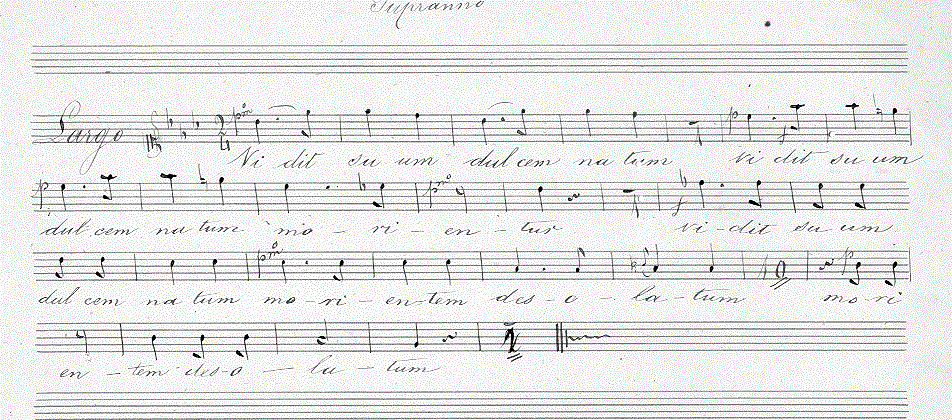 Supranno
Largo pmo
Vi dit su um dul cem na tum vi dit su um
dul cem na tum mo - ri - en - tur vi - dit su um
dul cem na tum mo - ri - en - tem des - o - la - tum mo - ri
en - tem des - o - la - tum